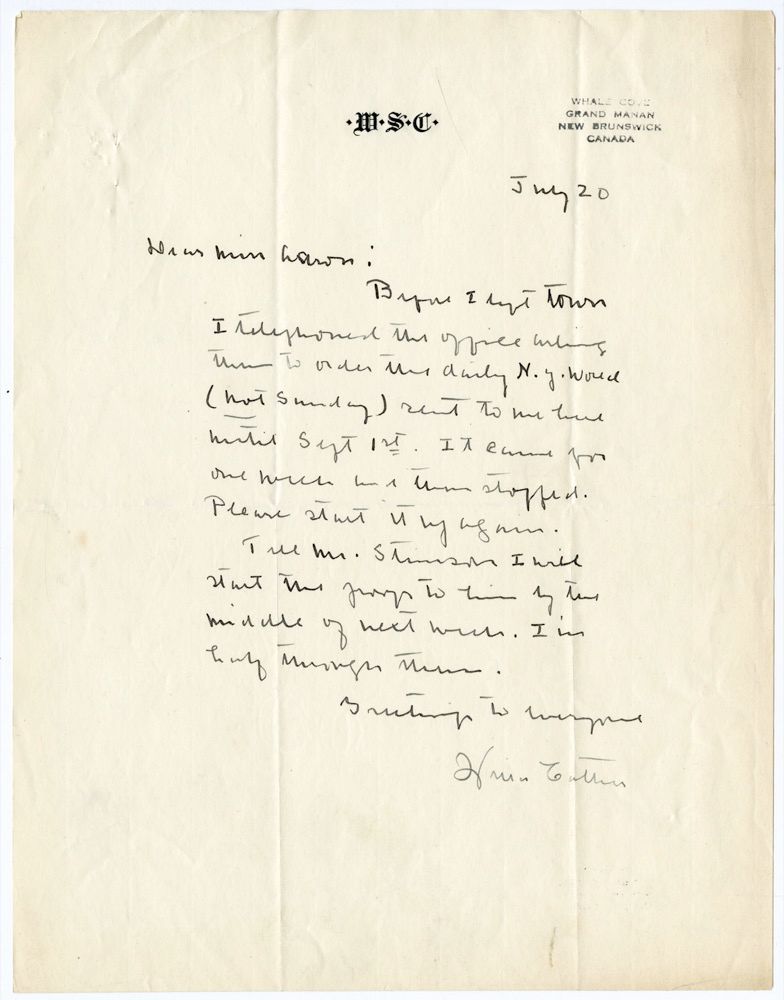 ·W·S·C·
WHALE COVE
GRAND MANAN
NEW BRUNSWICK
CANADA
July 20
Dear Miss Aaron:
Before I left town
I telephoned the office asking
them to order the daily N.Y. World
(not Sunday) sent to me here
until Sept 1st. It came for
one week and then stopped.
Please start it up again.
Tell Mr. Stimson I will
start the proofs to him by the
middle of next week. I'm
half through them.
Greetings to everyone
Willa Cather